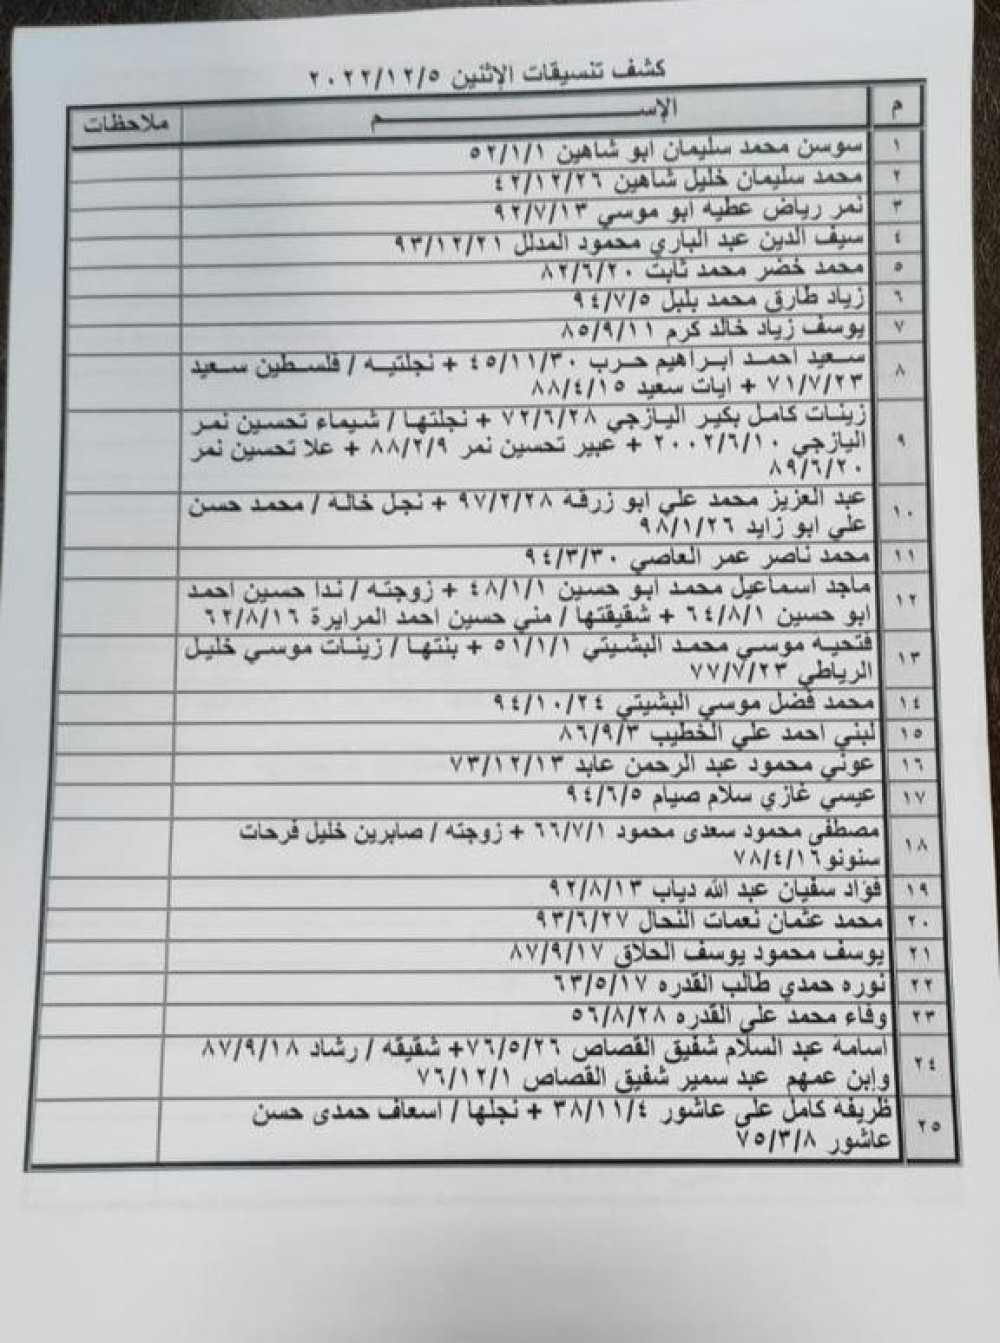 كشف تنسيقات الإثنين ٢٠٢٢/١٢/٥
م الإســـم ملاحظات
١ سوسن محمد سليمان ابو شاهين ٥٢/١/١
٢ محمد سليمان خليل شاهين ٤٢/١٢/٢٦
٣ نمر رياض عطيه ابو موسي ٩٢/٧/١٣
٤ سيف الدين عبد الباري محمود المدلل ٩٣/١٢/٢١
٥ محمد خضر محمد ثابت ٨٢/٦/٢٠
٦ زياد طارق محمد بلبل ٩٤/٧/٥
٧ يوسف زياد خالد كرم ٨٥/٩/١١
٨ سعيد احمد ابراهيم حرب ٤٥/١١/٣٠ + نجلتيه / فلسطين سعيد
٧١/٧/٢٣ + ايات سعيد ٨٨/٤/١٥
٩ زينات كامل بكير اليازجي ٧٢/٦/٢٨ + نجلتها / شيماء تحسين نمر
اليازجي ٢٠٠٢/٦/١٠ + عبير تحسين نمر ٨٨/٢/٩ + علا تحسين نمر
٨٩/٦/٢٠
١٠ عبد العزيز محمد علي ابو زرقة ٩٧/٢/٢٨ + نجل خاله / محمد حسن
علي ابو زايد ٩٨/١/٢٦
١١ محمد ناصر عمر العاصي ٩٤/٣/٣٠
١٢ ماجد اسماعيل محمد ابو حسين ٤٨/١/١ + زوجته / ندا حسين احمد
ابو حسين ٦٤/٨/١ + شقيقتها / مني حسين احمد المرايرة ٦٢/٨/١٦
١٣ فتحيه موسي محمد البشيتي ٥١/١/١ + بنتها / زينات موسي خليل
الرياطي ٧٧/٧/٢٣
١٤ محمد فضل موسي البشيتي ٩٤/١٠/٢٤
١٥ لبني احمد علي الخطيب ٨٦/٩/٣
١٦ عوني محمود عبد الرحمن عابد ٧٣/١٢/١٣
١٧ عيسي غازي سلام صيام ٩٤/٦/٥
١٨ مصطفى محمود سعدى محمود ٦٦/٧/١ + زوجته / صابرين خليل فرحات
سنونو ٧٨/٤/١٦
١٩ فؤاد سفيان عبد الله دياب ٩٢/٨/١٣
٢٠ محمد عثمان نعمات النحال ٩٣/٦/٢٧
٢١ يوسف محمود يوسف الحلاق ٨٧/٩/١٧
٢٢ نوره حمدي طالب القدره ٦٣/٥/١٧
٢٣ وفاء محمد علي القدره ٥٦/٨/٢٨
٢٤ اسامه عبد السلام شفيق القصاص ٧٦/٥/٢٦+ شقيقه / رشاد ٨٧/٩/١٨
وإبن عمهم عبد سمير شفيق القصاص ٧٦/١٢/١
٢٥ ظريفه كامل على عاشور ٣٨/١١/٤ + نجلها / اسعاف حمدى حسن
عاشور ٧٥/٣/٨